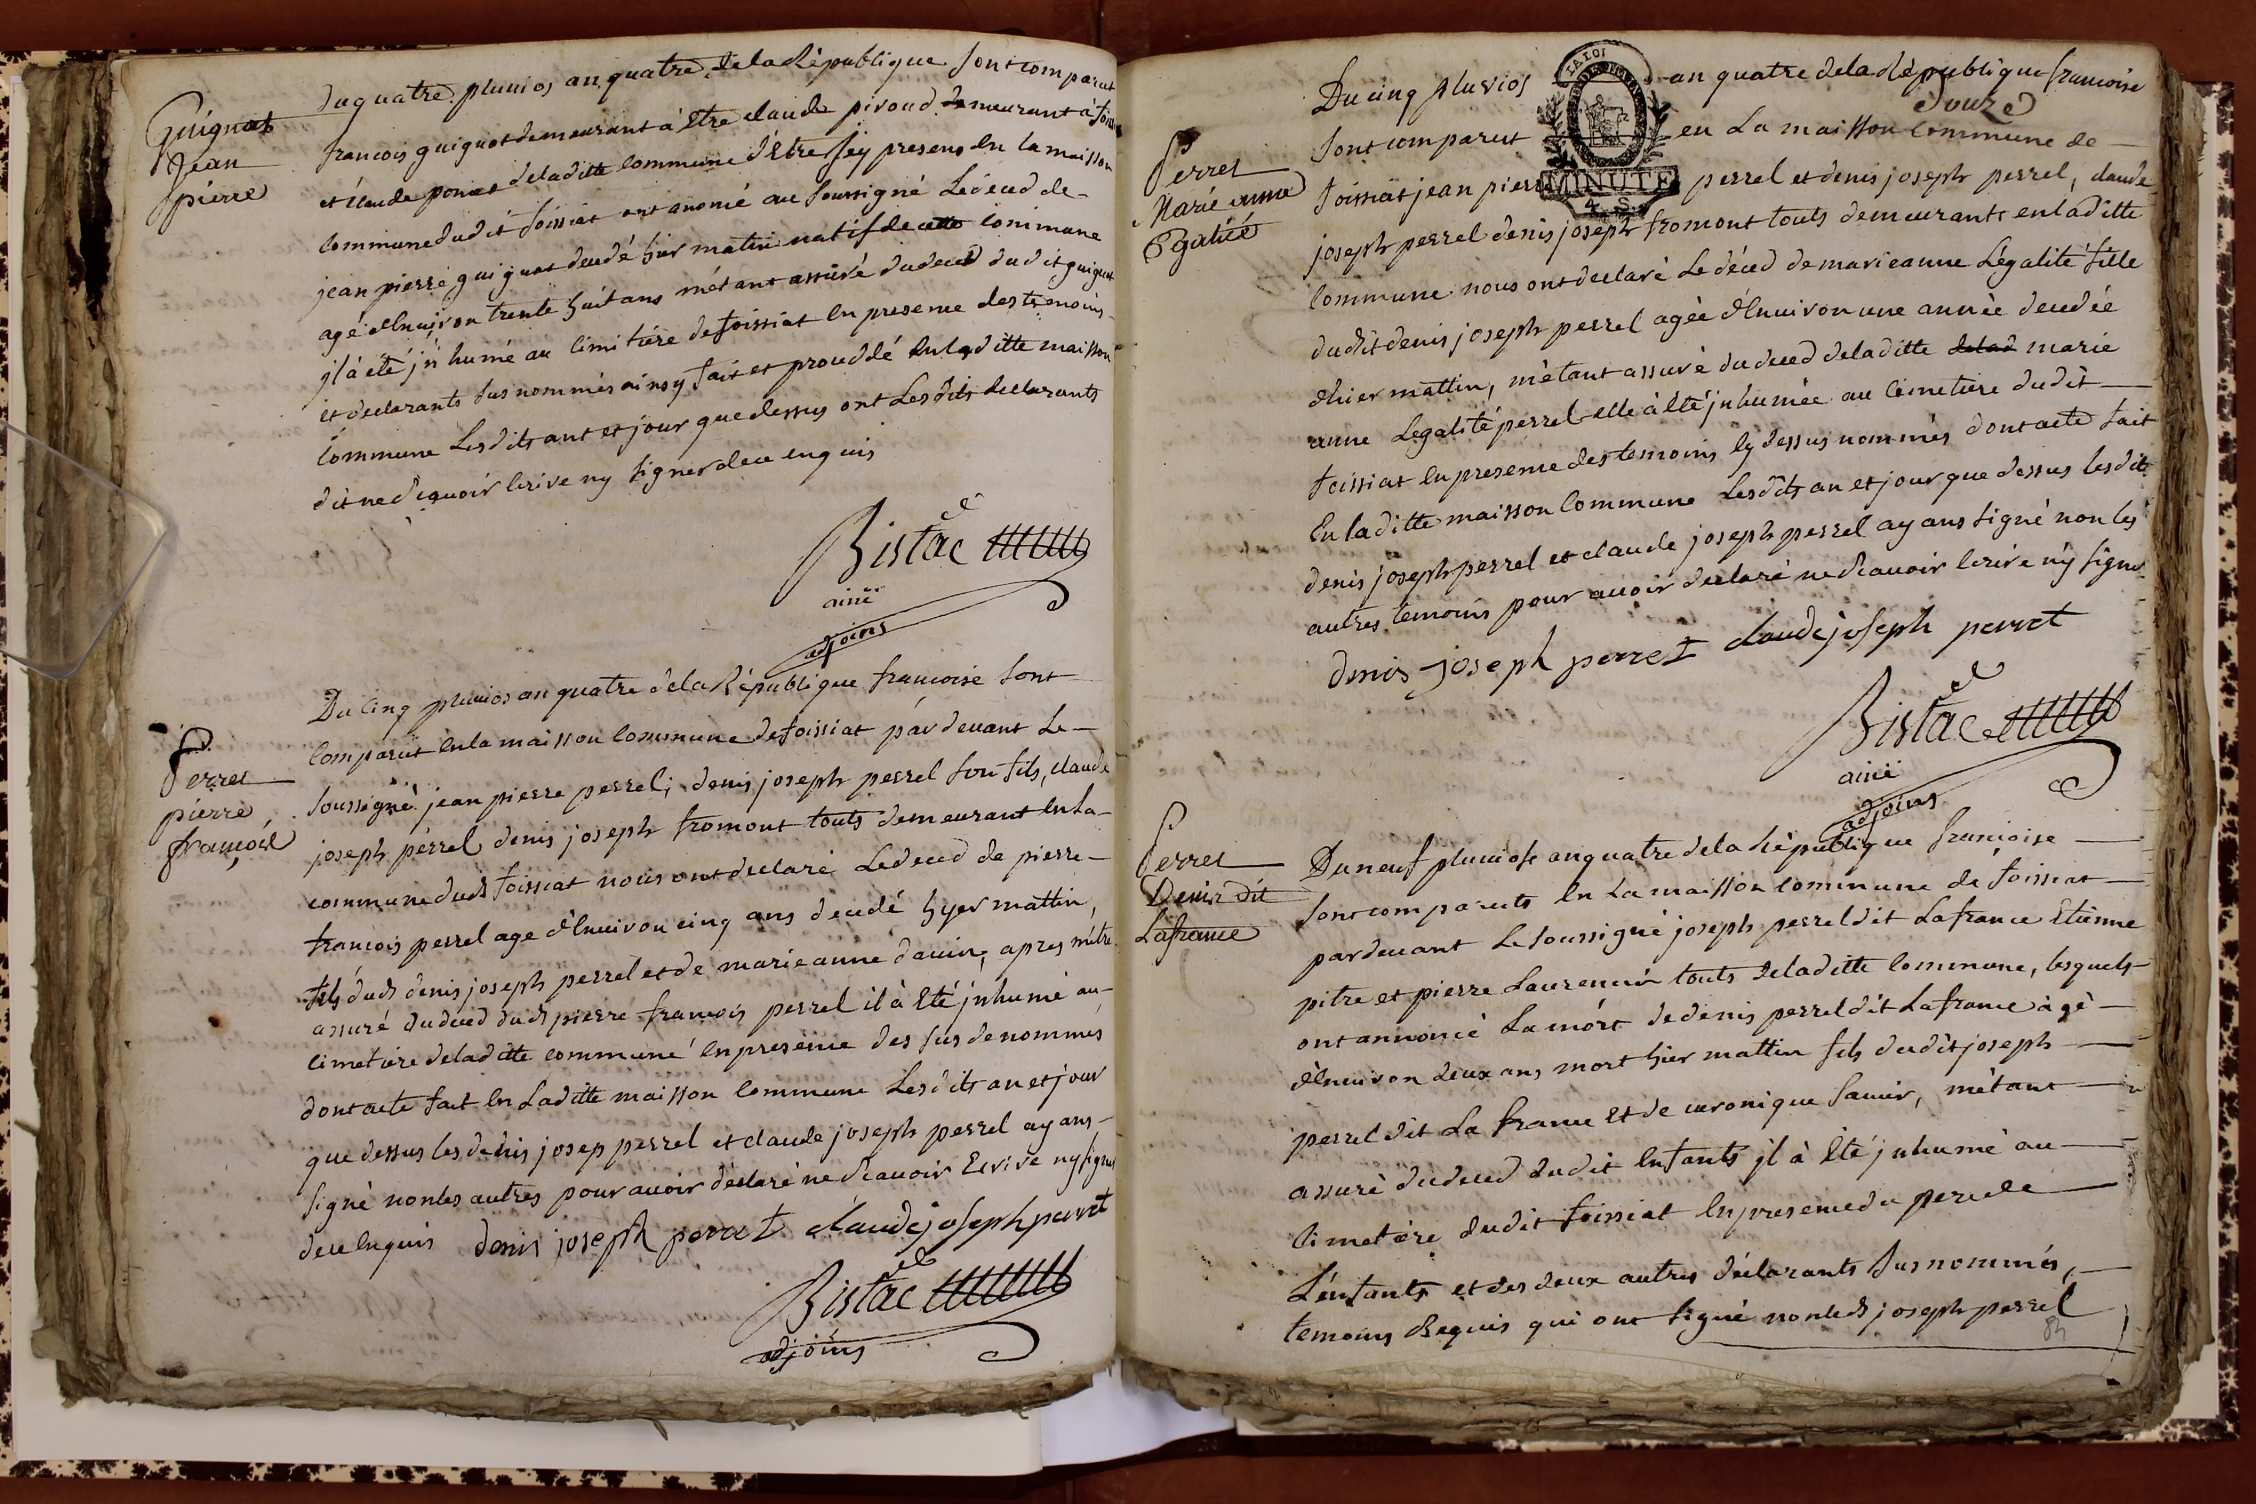 Guignot
Jean
pierre
du quatre pluvios an quatre de la République sont comparut
francois guignot demeurant à Etre claude piroud demeurant à foiss
et claude ponet de laditte commune d'Etre sy presens en la maisson
commune dudit foissiat ont anoncé au soussigné le deced de
jean pierre guignot decedé hier matin natif de cette commune
agé d'Environ trente huit ans m'étant assuré du deced dudit guignot
jl à été jnhumé au cimitiére de foissiat en presence des temoins
et declarants sus nommés ainsy fait et proceddé en laditte maisson
commune Lesdits ant et jour que dessus ont Lesdits declarants
dit ne sçavoir Ecrire ny signer de ce enquis
Bistac
ainé
adjoins
Perret
pierre
francois
Du cinq pluvios an quatre de la République francoise sont
comparut en la maisson commune de foissiat pardevant Le
soussigné jean pierre perrel, denis joseph perrel son fils, claude
joseph perrel denis joseph fromont touts demeurant en la
commune dudt foissiat nous ont declaré Le deced de pierre
francois perrel age d'Environ cinq ans decedé hyer mattin,
fils dudt denis joseph perrel et de marie anne davin, apres m'étre
assuré du deced dudt pierre francois perrel il à Eté jnhumé au
cimetiére de laditte commune En presence des sus denommés
dont acte fait En Laditte maisson commune Lesdits an et jour
que dessus les denis josep perrel et claude joseph perrel ayans
signé non les autres pour avoir déclaré ne sçavoir Ecrire ny signer
de ce Enquis denis joseph perret claude joseph perret
Bistac
adjoins
Perret
Marie anne
Egalité
Du cinq pluvios an quatre de la République francoise
sont comparut en La maisson commune de
foissiat jean pierre perrel et denis joseph perrel, claude
joseph perrel denis joseph fromont touts demeurants en laditte
commune nous ont declaré Le déced de marie anne Legalité fille
dudit denis joseph perrel agée d'Environ une année decedée
d'hier mattin, m'étant assuré du deced de laditte delad marie
anne Legalité perrel elle à Eté jnhumée au cimetiere dudit
foissiat En presence des temoins cy dessus nommés dont acte fait
En laditte maisson commune Lesdits an et jour que dessus lesdits
denis joseph perrel et claude joseph perrel ayans signé non les
autres temoins pour avoir declaré ne sçavoir Ecrire ny signer
denis joseph perret claude joseph perret
Bistac
ainé
adjoins
MINUTE
4. S.
Perret
Denis dit
Lafrance
Du neuf pluviose an quatre de la République françoise
sont comparuts En La maisson commune de foissiat
pardevant Le soussigné joseph perrel dit Lafrance Etienne
pitre et pierre Laurencin touts de laditte commune, lesquels
ont annoncé La mort de denis perrel dit Lafrance àgé
d'Environ deux ans mort hier mattin fils dudit joseph
perrel dit La france Et de veronique m'étant
assuré du deced dudit Enfants jl à Eté jnhumé au
cimetiére dudit foissiat En presence du pere de
L'enfants et des deux autres déclarants susnommés,
temoins Requis qui ont signé non ledt joseph perrel